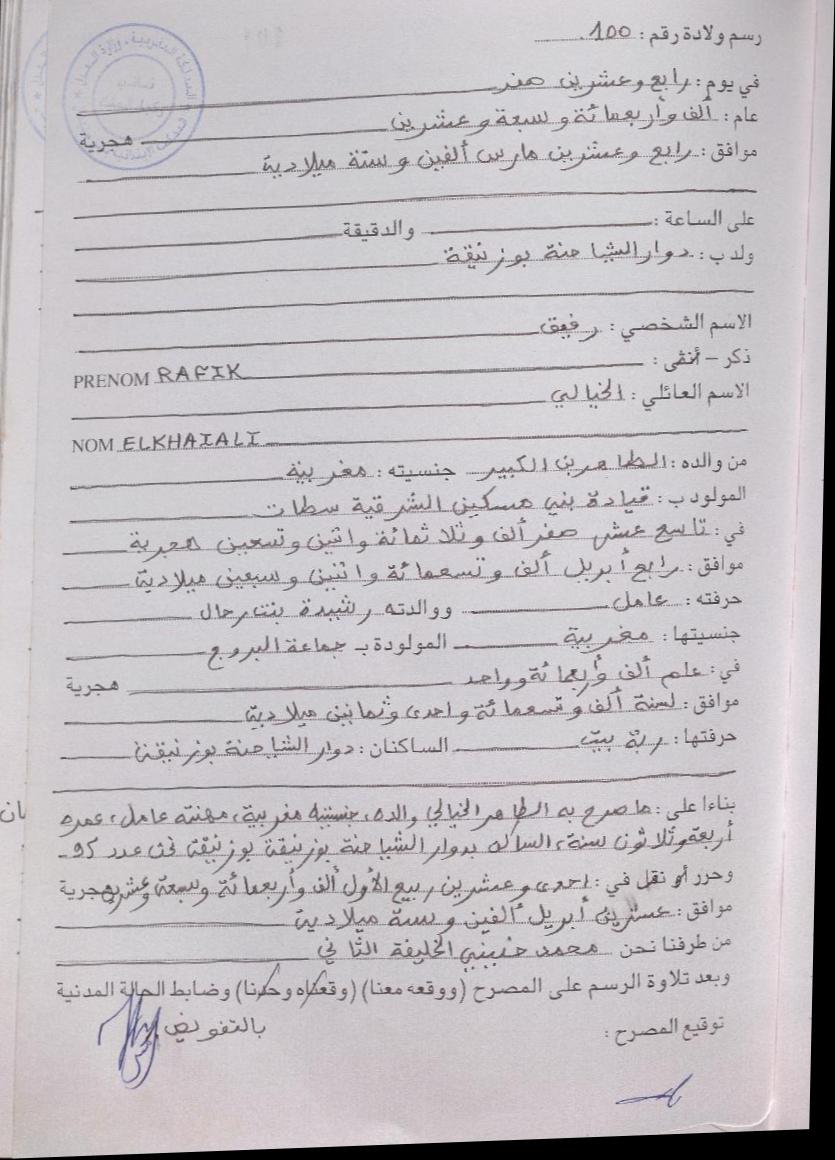 رسم ولادة رقم : 100
في يوم : رابع وعشرين صفر
عام : ألف وأربعمائة وسبعة وعشرين هجرية
موافق : رابع وعشرين مارس ألفين وستة ميلادية
على الساعة : والدقيقة
ولد ب : دوار الشياحنة بوزنيقة
الاسم الشخصي : رفيق
ذكر – أنثى :
PRENOM RAFIK
الاسم العائلي : الخيالي
NOM ELKHAIALI
من والده : الطاهر بن الكبير جنسيته : مغربية
المولود ب : قيادة بني مسكين الشرقية سطات
في : تاسع عشر صفر ألف وثلاثمائة واثنين وتسعين هجرية
موافق : رابع أبريل ألف وتسعمائة واثنين وسبعين ميلادية
حرفته : عامل ووالدته رشيدة بنت رحال
جنسيتها : مغربية المولودة بـ جماعة البروج
في : علم ألف وأربعمائة وواحد هجرية
موافق : لسنة ألف وتسعمائة واحدى وثمانين ميلادية
حرفتها : ربة بيت الساكنان : دوار الشياحنة بوزنيقة
بناءا على : ما صرح به الطاهر الخيالي والده، جنسيته مغربية، مهنته عامل، عمره
أربعة وثلاثون سنة، الساكن بدوار الشياحنة بوزنيقة بوزنيقة تحت عدد 95
وحرر أو نقل في : احدى وعشرين ربيع الأول ألف وأربعمائة وسبعة وعشرين هجرية
موافق : عشرين أبريل ألفين وستة ميلادية
من طرفنا نحن محمد الخليفة الثاني
وبعد تلاوة الرسم على المصرح (ووقعه معنا) (وقعناه وحدنا) وضابط الحالة المدنية
توقيع المصرح : بالتفويض